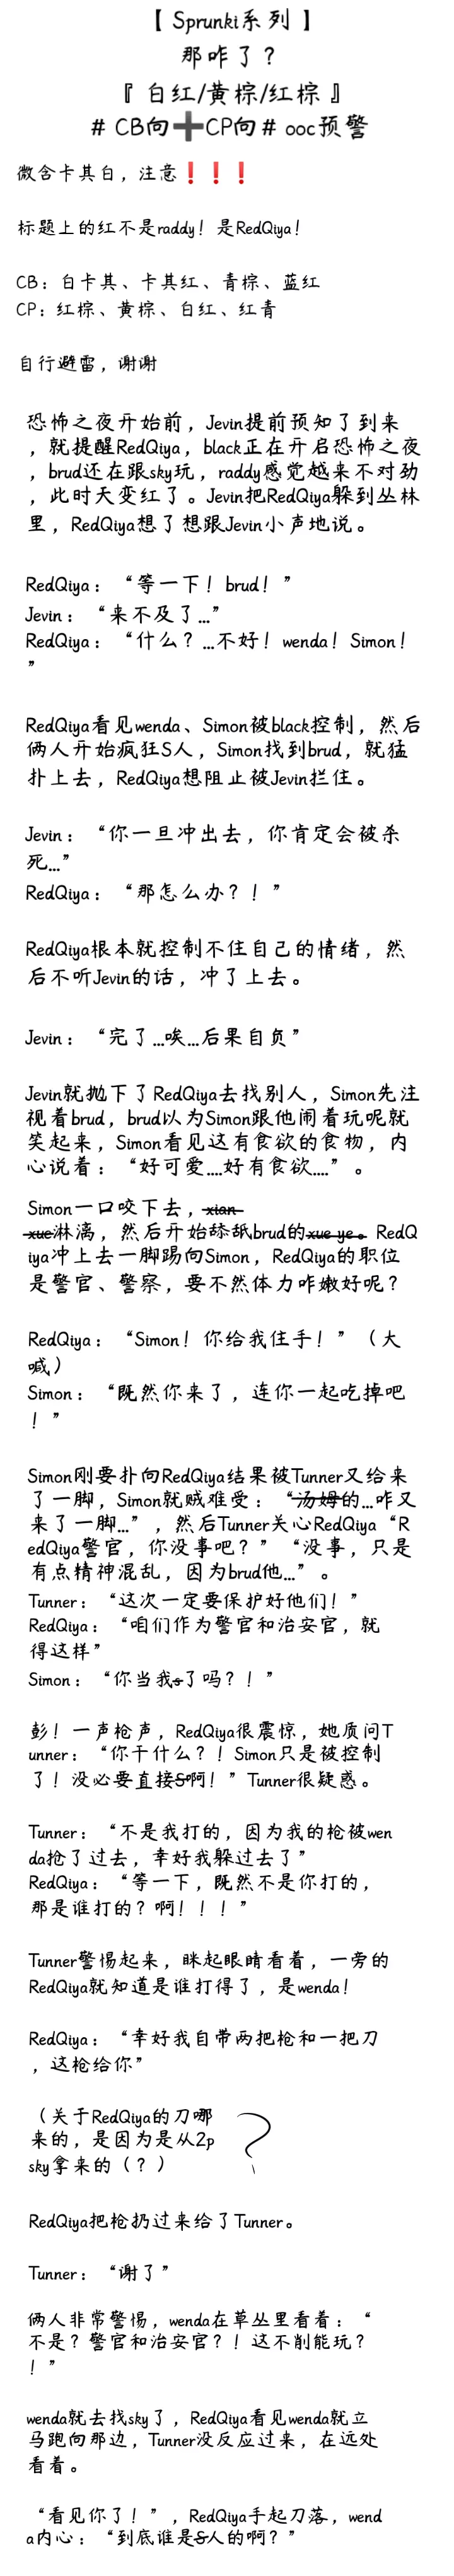 【 Sprunki系列 】
那咋了？
『 白红/黄棕/红棕 』
# CB向➕CP向 # ooc预警
微含卡其白，注意❗❗❗
标题上的红不是raddy！是RedQiya！
CB：白卡其、卡其红、青棕、蓝红
CP：红棕、黄棕、白红、红青
自行避雷，谢谢
恐怖之夜开始前，Jevin提前预知了到来
，就提醒RedQiya，black正在开启恐怖之夜
，brud还在跟sky玩，raddy感觉越来不对劲
，此时天变红了。Jevin把RedQiya躲到丛林
里，RedQiya想了想跟Jevin小声地说。
RedQiya：“等一下！brud！”
Jevin：“来不及了...”
RedQiya：“什么？...不好！wenda！Simon！
”
RedQiya看见wenda、Simon被black控制，然后
俩人开始疯狂S人，Simon找到brud，就猛
扑上去，RedQiya想阻止被Jevin拦住。
Jevin：“你一旦冲出去，你肯定会被杀
死...”
RedQiya：“那怎么办？！”
RedQiya根本就控制不住自己的情绪，然
后不听Jevin的话，冲了上去。
Jevin：“完了...唉...后果自负”
Jevin就抛下了RedQiya去找别人，Simon先注
视着brud，brud以为Simon跟他闹着玩呢就
笑起来，Simon看见这有食欲的食物，内
心说着：“好可爱....好有食欲....”。
Simon一口咬下去，xian
xue淋漓，然后开始舔舐brud的xue ye。RedQ
iya冲上去一脚踢向Simon，RedQiya的职位
是警官、警察，要不然体力咋嫩好呢？
RedQiya：“Simon！你给我住手！”（大
喊）
Simon：“既然你来了，连你一起吃掉吧
！”
Simon刚要扑向RedQiya结果被Tunner又给来
了一脚，Simon就贼难受：“汤姆的...咋又
来了一脚...”，然后Tunner关心RedQiya“R
edQiya警官，你没事吧？”“没事，只是
有点精神混乱，因为brud他...”。
Tunner：“这次一定要保护好他们！”
RedQiya：“咱们作为警官和治安官，就
得这样”
Simon：“你当我s了吗？！”
彭！一声枪声，RedQiya很震惊，她质问T
unner：“你干什么？！Simon只是被控制
了！没必要直接S啊！”Tunner很疑惑。
Tunner：“不是我打的，因为我的枪被wen
da抢了过去，幸好我躲过去了”
RedQiya：“等一下，既然不是你打的，
那是谁打的？啊！！！”
Tunner警惕起来，眯起眼睛看着，一旁的
RedQiya就知道是谁打得了，是wenda！
RedQiya：“幸好我自带两把枪和一把刀
，这枪给你”
（关于RedQiya的刀哪
来的，是因为是从2p
sky拿来的（？）
?
RedQiya把枪扔过来给了Tunner。
Tunner：“谢了”
俩人非常警惕，wenda在草丛里看着：“
不是？警官和治安官？！这不削能玩？
！”
wenda就去找sky了，RedQiya看见wenda就立
马跑向那边，Tunner没反应过来，在远处
看着。
“看见你了！”，RedQiya手起刀落，wend
a内心：“到底谁是S人的啊？”